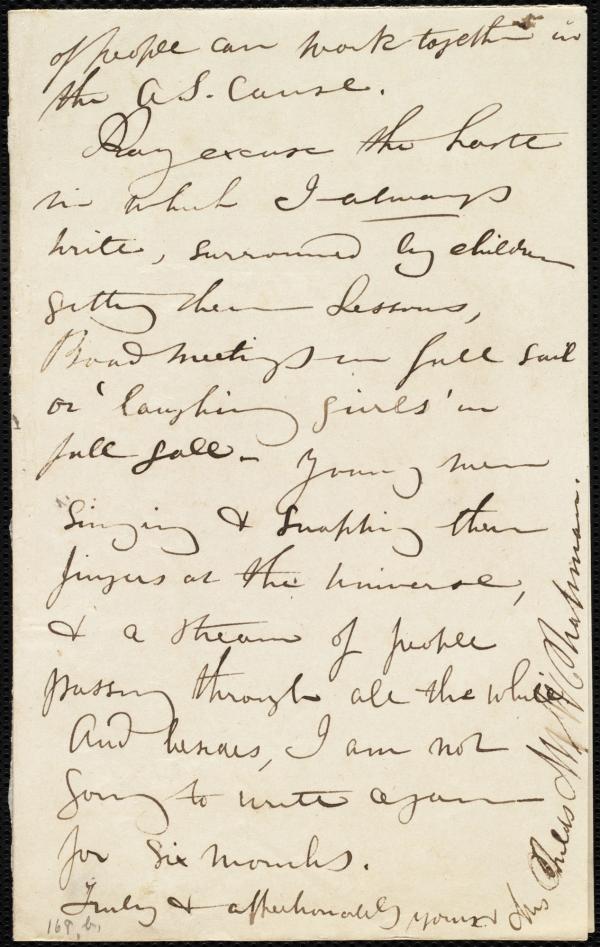 of people can work together in
the A.S. Cause.
Pray excuse the haste
in which I always
write, surrounded by children
getting their lessons,
Board meetings in full sail
or 'laughing girls' in
full gall - young men
singing & snapping their
fingers at the Universe,
& a stream of people
passing through all the while
And besides, I am not
going to write again
for six months.
Truly & affectionately yours
M. W. Chapman.
Mrs Childs
168, b,